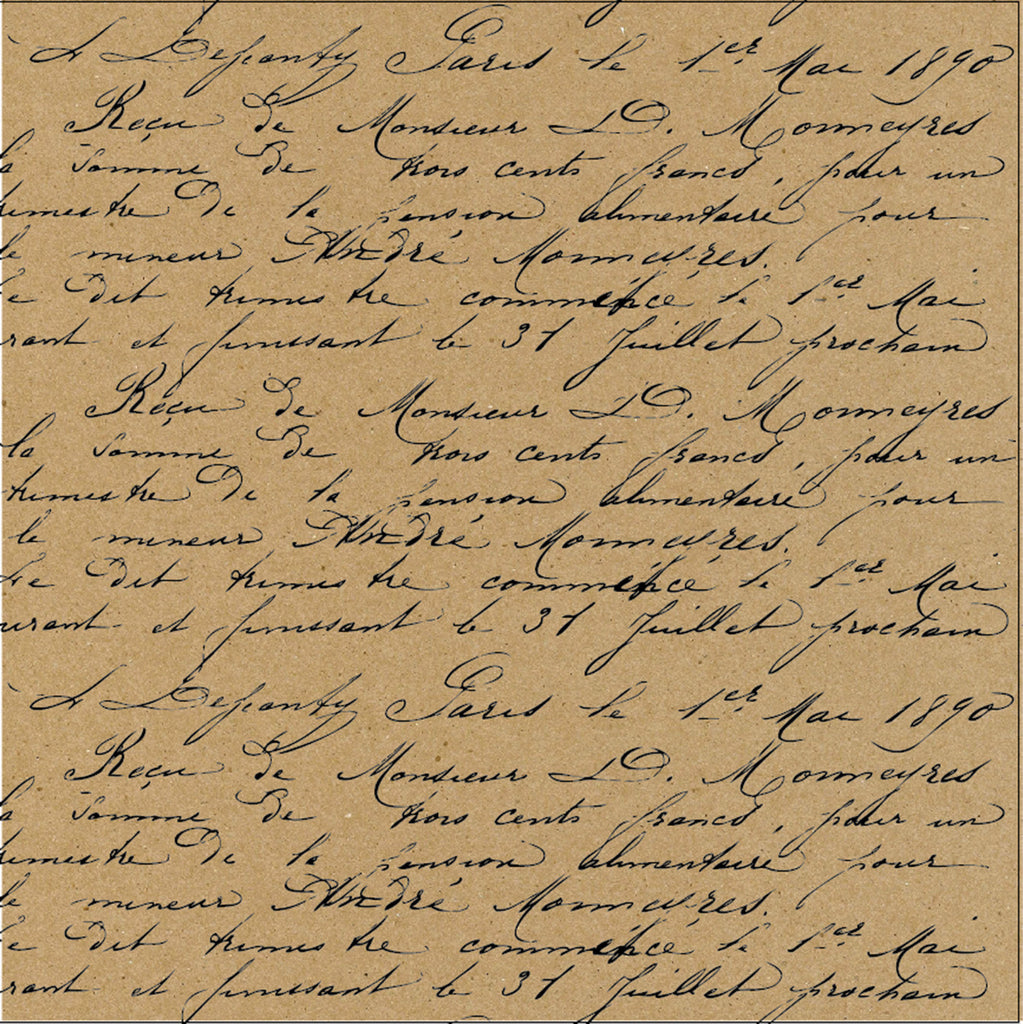 Paris le 1er Mai 1890
Reçu de Monsieur D. Monneyres
la somme de trois cents francs, pour un
trimestre de la pension alimentaire pour
le mineur André Monneyres.
Le dit trimestre commencé le 1er Mai
rant et finissant le 31 Juillet prochain
Reçu de Monsieur D. Monneyres
la somme de trois cents francs, pour un
trimestre de la pension alimentaire pour
le mineur André Monneyres.
Le dit trimestre commencé le 1er Mai
urant et finissant le 31 Juillet prochain
Paris le 1er Mai 1890
Reçu de Monsieur D. Monneyres
la somme de trois cents francs, pour un
trimestre de la pension alimentaire pour
le mineur André Monneyres.
Le dit trimestre commencé le 1er Mai
rant et finissant le 31 Juillet prochain